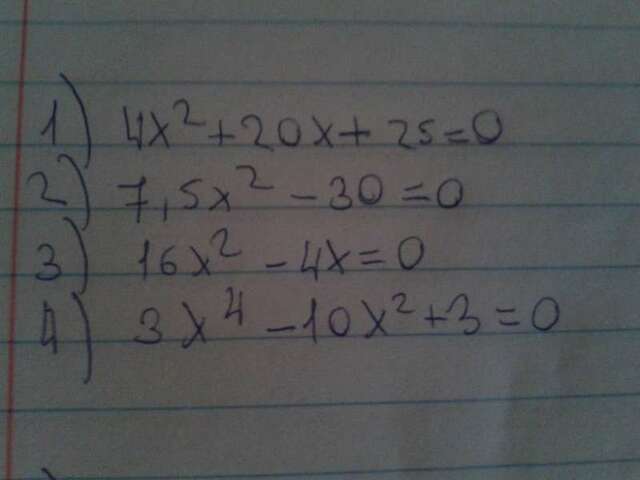 1) 4x² + 20x + 25 = 0
2) 7,5x² - 30 = 0
3) 16x² - 4x = 0
4) 3x⁴ - 10x² + 3 = 0